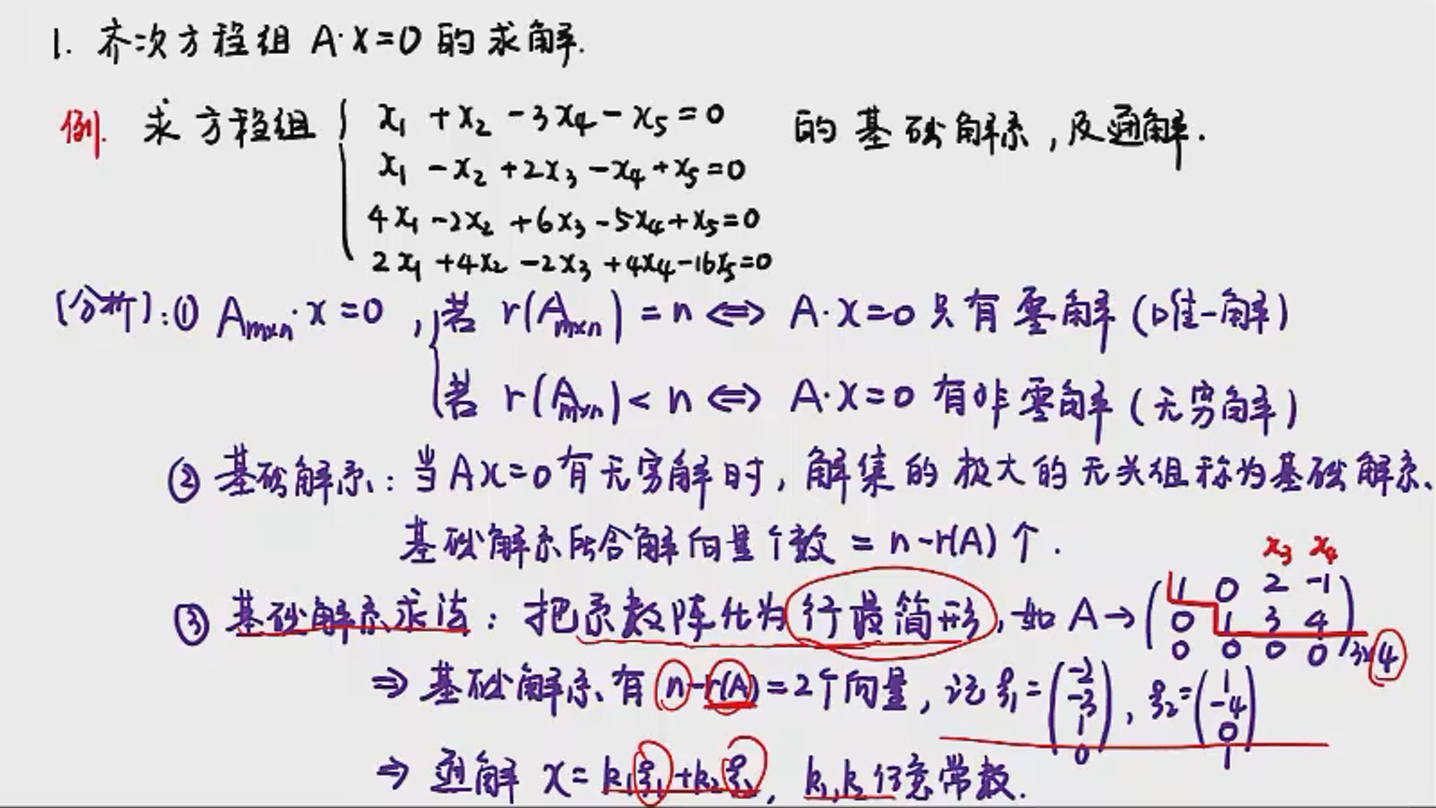 1. 齐次方程组 A·X=0 的求解.
例. 求方程组 { x₁ +x₂ -3x₄ -x₅=0 的基础解系,及通解.
x₁ -x₂ +2x₃ -x₄ +x₅=0
4x₁ -2x₂ +6x₃ -5x₄+x₅=0
2x₁ +4x₂ -2x₃ +4x₄-16x₅=0
[分析]:① Aₘₓₙ·x=0 , { 若 r(Aₘₓₙ) = n ⇔ A·X=0 只有零解 (唯一解)
若 r(Aₘₓₙ) < n ⇔ A·X=0 有非零解 (无穷解)
② 基础解系: 当AX=0有无穷解时, 解集的极大的无关组称为基础解系.
基础解系所含解向量个数 = n-r(A) 个.
x₃ x₄
③ 基础解系求法: 把系数阵化为行最简形, 如 A→ (1 0 2 -1
0 1 3 4
0 0 0 0)3×4
⇒ 基础解系有 n-r(A)=2个向量, 记 ξ₁=(-2 -3 1 0), ξ₂=(1 -4 0 1)
⇒ 通解 x= k₁ξ₁+k₂ξ₂, k₁,k₂任意常数.